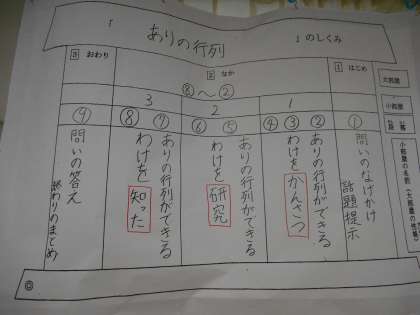 「ありの行列」のしくみ
大段落
小段落
段落
小段落の名前(大段落の性格)
1 はじめ
①
問いのなげかけ
話題提示
2 なか
⑧〜②
1
④ ③ ②
ありの行列ができる
わけをかんさつ
2
⑥ ⑤
ありの行列ができる
わけを研究
3
⑧ ⑦
ありの行列ができる
わけを知った
3 おわり
⑨
問いの答え
終わりのまとめ
◎